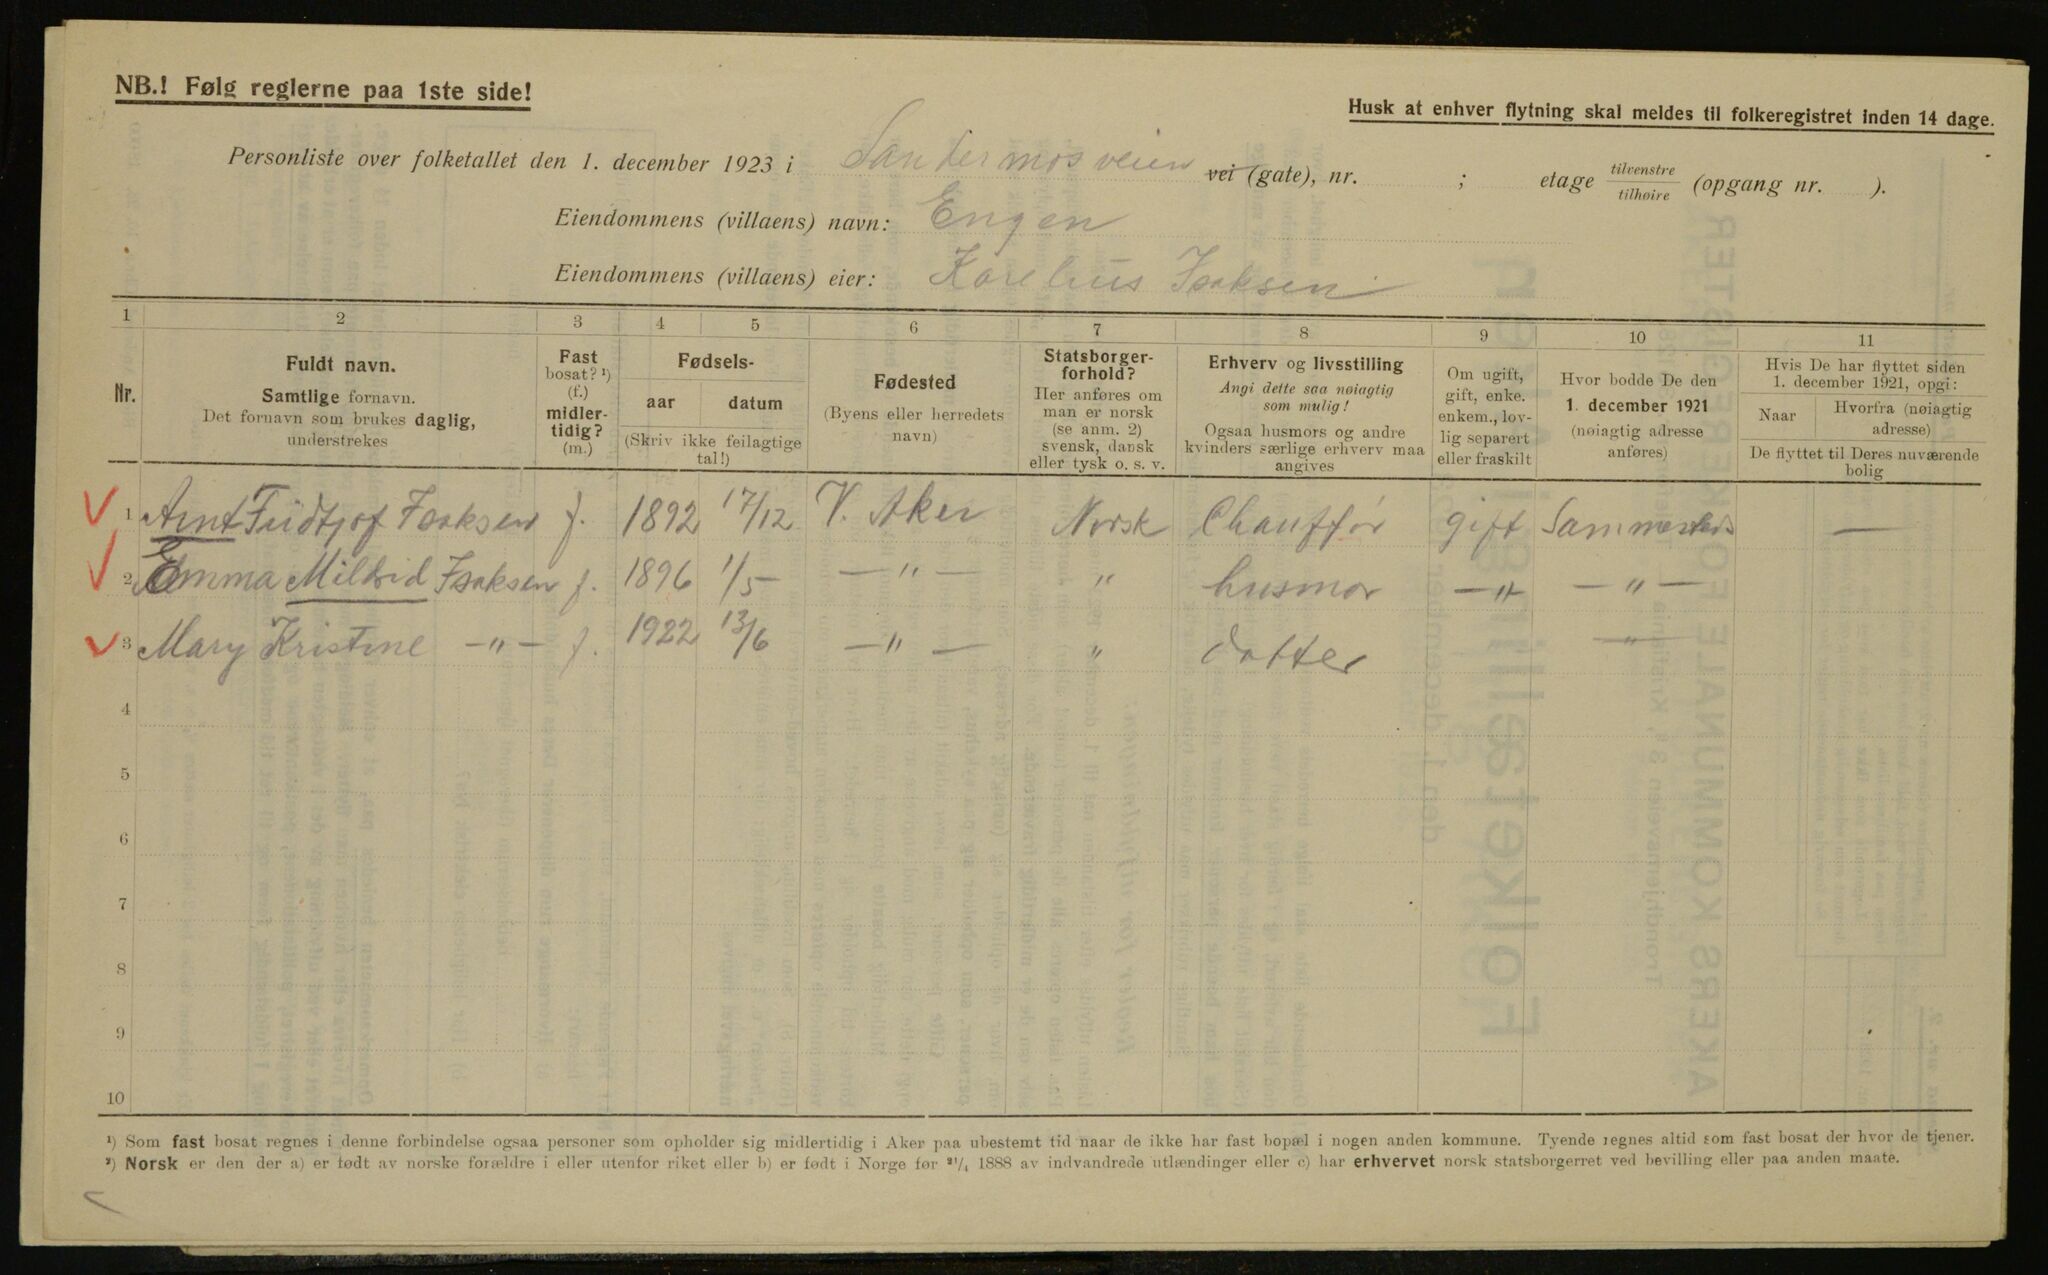 NB.! Følg reglerne paa 1ste side!
Husk at enhver flytning skal meldes til folkeregistret inden 14 dage.
Personliste over folketallet den 1. december 1923 i Sandermosveien vei (gate), nr. ; etage tilvenstre tilhøire (opgang nr. ).
Eiendommens (villaens) navn: Engen
Eiendommens (villaens) eier: Karelius Isaksen
1 2 3 4 5 6 7 8 9 10 11
Nr.
Fuldt navn.
Samtlige fornavn.
Det fornavn som brukes daglig,
understrekes
Fast
bosat? ¹)
(f.)
midler-
tidig?
(m.)
Fødsels-
aar datum
(Skriv ikke feilagtige
tal!)
Fødested
(Byens eller herredets
navn)
Statsborger-
forhold?
Her anføres om
man er norsk
(se anm. 2)
svensk, dansk
eller tysk o. s. v.
Erhverv og livsstilling
Angi dette saa nøiagtig
som mulig!
Ogsaa husmors og andre
kvinders særlige erhverv maa
angives
Om ugift,
gift, enke.
enkem., lov-
lig separert
eller fraskilt
Hvor bodde De den
1. december 1921
(nøiagtig adresse
anføres)
Hvis De har flyttet siden
1. december 1921, opgi:
Naar Hvorfra (nøiagtig
adresse)
De flyttet til Deres nuværende
bolig
1 Arnt Fridtjof Isaksen f. 1892 17/12 V. Aker Norsk Chauffør gift Sammesteds —
2 Emma Mildrid Isaksen f. 1896 1/5 — " — " husmor — " — " —
3 Mary Kristine — " — f. 1922 13/6 — " — " datter — " —
4
5
6
7
8
9
10
¹) Som fast bosat regnes i denne forbindelse ogsaa personer som opholder sig midlertidig i Aker paa ubestemt tid naar de ikke har fast bopæl i nogen anden kommune. Tyende regnes altid som fast bosat der hvor de tjener.
²) Norsk er den der a) er født av norske forældre i eller utenfor riket eller b) er født i Norge før ²¹/₄ 1888 av indvandrede utlændinger eller c) har erhvervet norsk statsborgerret ved bevilling eller paa anden maate.